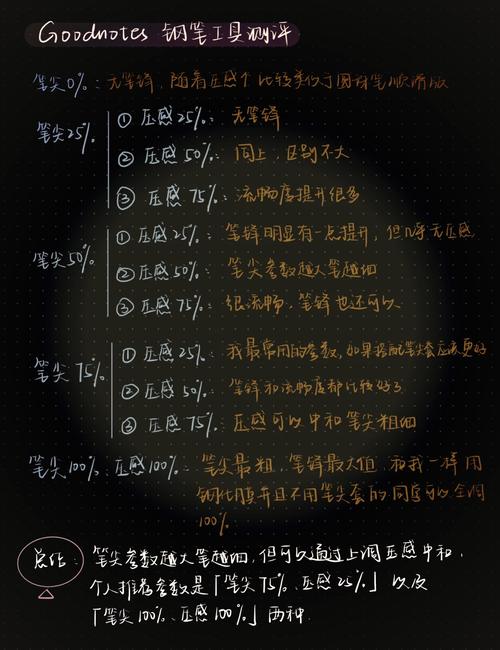 Goodnotes 钢笔工具测评
笔尖0%：无笔锋，随着压感个比较类似于圆珠笔顺滑版
笔尖25%
① 压感25%：无笔锋
② 压感50%：同上，区别不大
③ 压感75%：流畅度提升很多
笔尖50%
① 压感25%：笔锋明显有一点提升，但几乎无压感
② 压感50%：笔尖参数越大笔越细
③ 压感75%：很流畅，笔锋也还可以
笔尖75%
① 压感25%：我最常用的参数，如果搭配笔尖套应该更好
② 压感50%：笔锋和流畅度都比较好了
③ 压感75%：压感可以中和笔尖粗细
笔尖100%、压感100%：笔尖最粗，笔锋最大值，和我一样用
钢化膜并且不用笔尖套的同志可以全调
100%
总结：笔尖参数越大笔越细，但可以通过上调压感中和，
个人推荐参数是「笔尖75%、压感25%」以及
「笔尖100%、压感100%」两种.